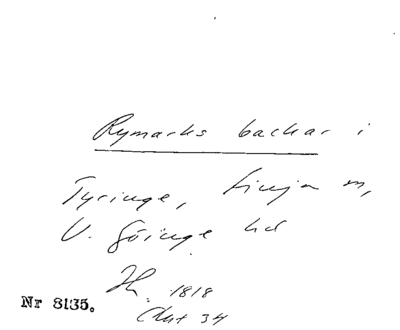 Rymarks backar i
Tyringe, Finja m,
V. Göinge hd
1818
34
Nr 8135.